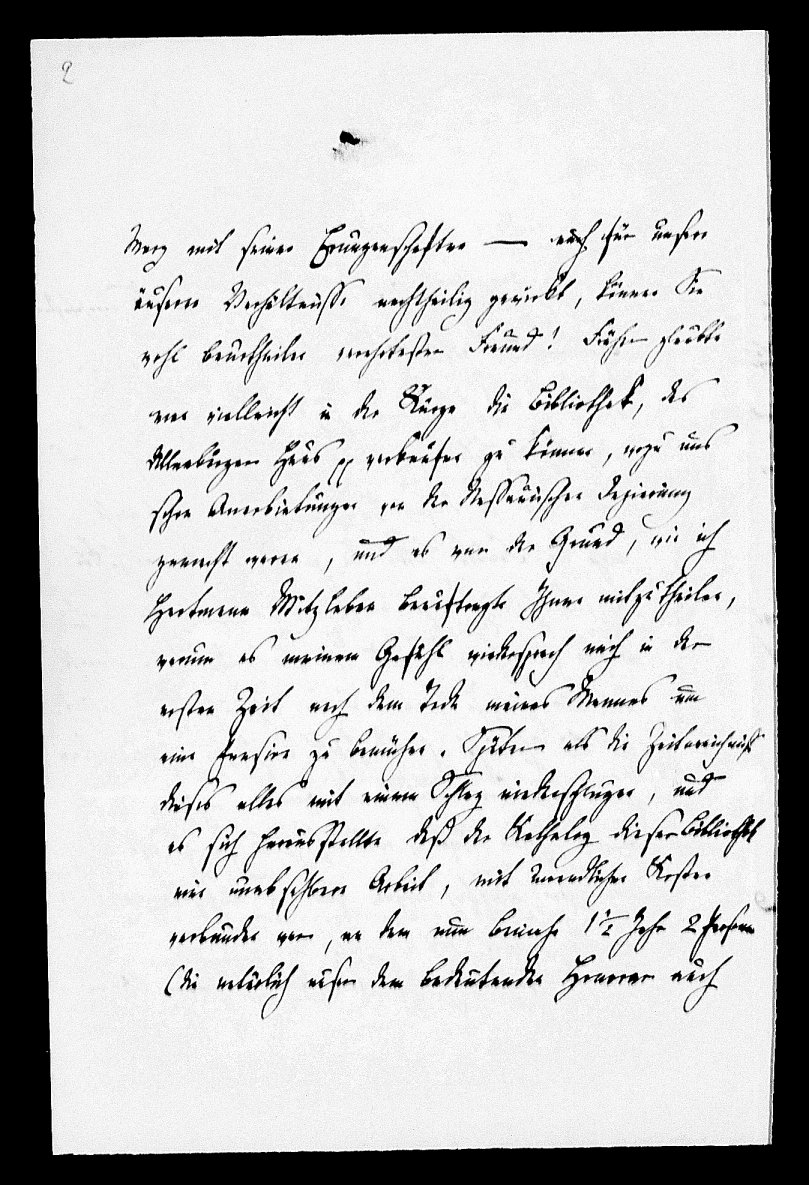 2
März mit seinen Errungenschaften — auch für unsere
äusern Verhältnisse nachtheilig gewirkt, können Sie
wohl beurtheilen verehrtester Freund! Früher glaubte
man vielleicht in der Kürze die Bibliothek, das
Altenburger Haus pp verkaufen zu können, wozu uns
schon Anerbietungen von der Nassauischen Regierung
gemacht waren, und es war der Grund, wie ich
Hartmann Witzleben beauftragte Ihnen mitzutheilen,
warum es meinem Gefühl widersprach mich in der
ersten Zeit nach dem Tode meines Mannes um
eine Pension zu bemühen. Später als die Zeitereignisse
dieses alles mit einem Schlag niederschlugen, und
es sich herausstellte daß der Kathalog dieser Bibliothek
eine unabsehbare Arbeit, mit unendlichen Kosten
verbunden war, an dem nun beinahe 1½ Jahr 2 Personen
(die natürlich auser dem bedeutenden Honorar auch